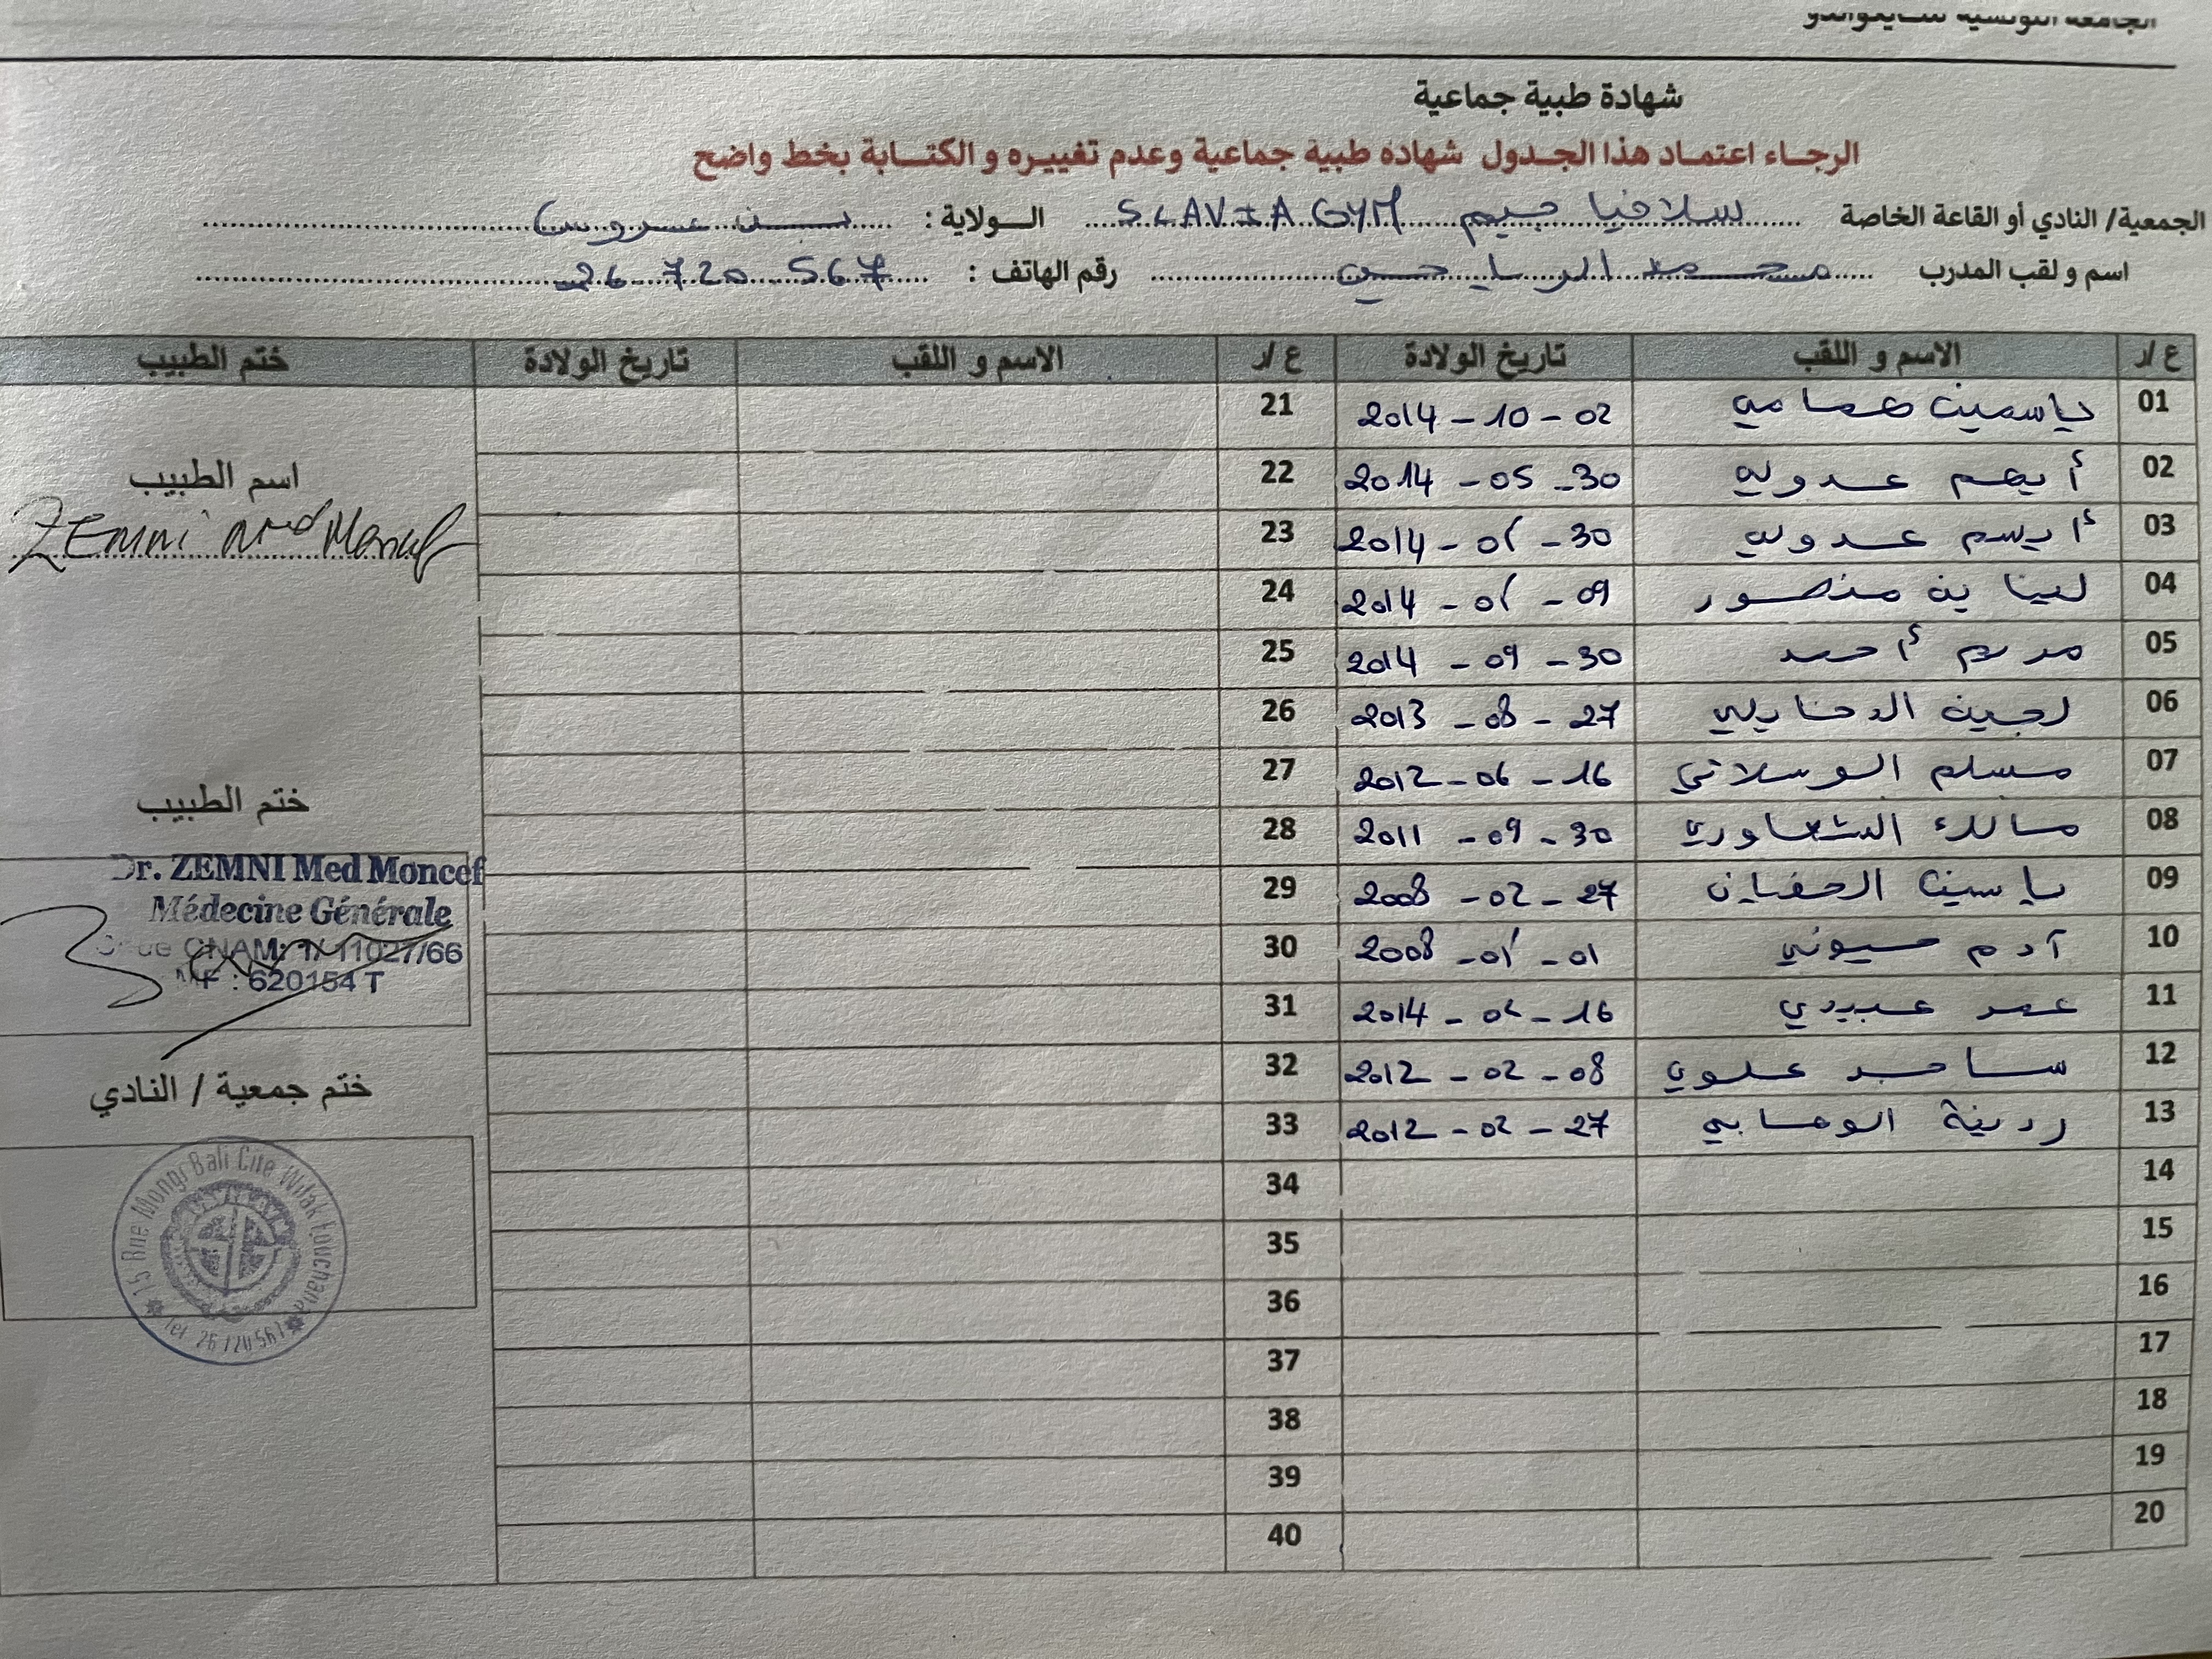 شهادة طبية جماعية
الرجاء اعتماد هذا الجدول شهادة طبية جماعية وعدم تغييره و الكتابة بخط واضح
الجمعية/ النادي أو القاعة الخاصة سلافيا جيم SLAVIA GYM الولاية : بن عروس
اسم و لقب المدرب محمد رقم الهاتف : 26 720 567
ع/ر الاسم و اللقب تاريخ الولادة ع/ر الاسم و اللقب تاريخ الولادة ختم الطبيب
01 ياسمين همامي 2014 - 10 - 02 21
02 أيهم عدولي 2014 - 05 - 30 22
اسم الطبيب
03 عدولي 2014 - 30 23
ZEMNI Med Moncef
04 منصور 2014 - 09 24
05 مريم أحمد 2014 - 09 - 30 25
06 لجين 2013 - 08 - 27 26
07 مسلم الوسلاتي 2012 - 06 - 16 27
ختم الطبيب
08 2011 - 09 - 30 28
09 ياسين 2008 - 02 - 27 29
10 آدم 2008 - 01 30
11 عمر عبيدي 2014 - 16 31
12 علوي 2012 - 02 - 08 32
13 الوهابي 2012 - 02 - 27 33
14 34
15 35
16 36
17 37
18 38
19 39
20 40
Dr. ZEMNI Med Moncef
Médecine Générale
CNAM: 1/11027/66
MF : 620154 T
ختم جمعية / النادي
15 Rue Mongi Bali Cite Wifak
Tel 26 720 567